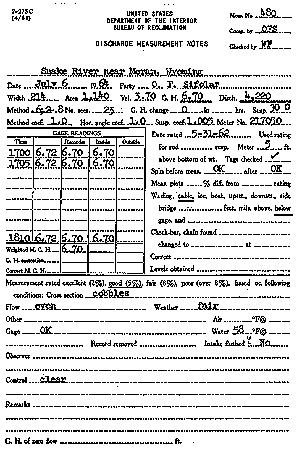 7-275C
(4/62)
UNITED STATES
DEPARTMENT OF THE INTERIOR
BUREAU OF RECLAMATION
DISCHARGE MEASUREMENT NOTES
Meas. No. 480
Comp. by
Checked by
Snake River near Moran, Wyoming
Date July 6, 19 64 Party
Width 214 Area 1,140 Vel. 3.70 G. H. 6.70 Disch. 4,220
Method .6-.2-.8 No. secs. 25 G. H. change 0 in hrs. Susp.
Method coef. 1.0 Hor. angle coef. 1.0 Susp. coef. 1.005 Meter No.
GAGE READINGS
Time Recorder Inside Outside
1700 6.72 6.70 6.70
1705 6.72 6.70 6.70
1810 6.72 6.70 6.70
Weighted M. G. H. 6.70
G. H. correction
Correct M. G. H.
Date rated 5-31-62 Used rating
for rod susp. Meter ft.
above bottom of wt. Tags checked ✓
Spin before meas. OK after OK
Meas. plots % diff. from rating
Wading, cable, ice, boat, upstr., downstr., side
bridge feet, mile, above, below
gage, and
Check-bar, chain found
changed to at
Correct
Levels obtained
Measurement rated excellent (2%), good (5%), fair (8%), poor (over 8%), based on following
conditions: Cross section cobbles
Flow even Weather fair
Other Air °F@
Gage OK Water 58 °F@
Record removed Intake flushed No
Observer
Control clear
Remarks
G. H. of zero flow ft.